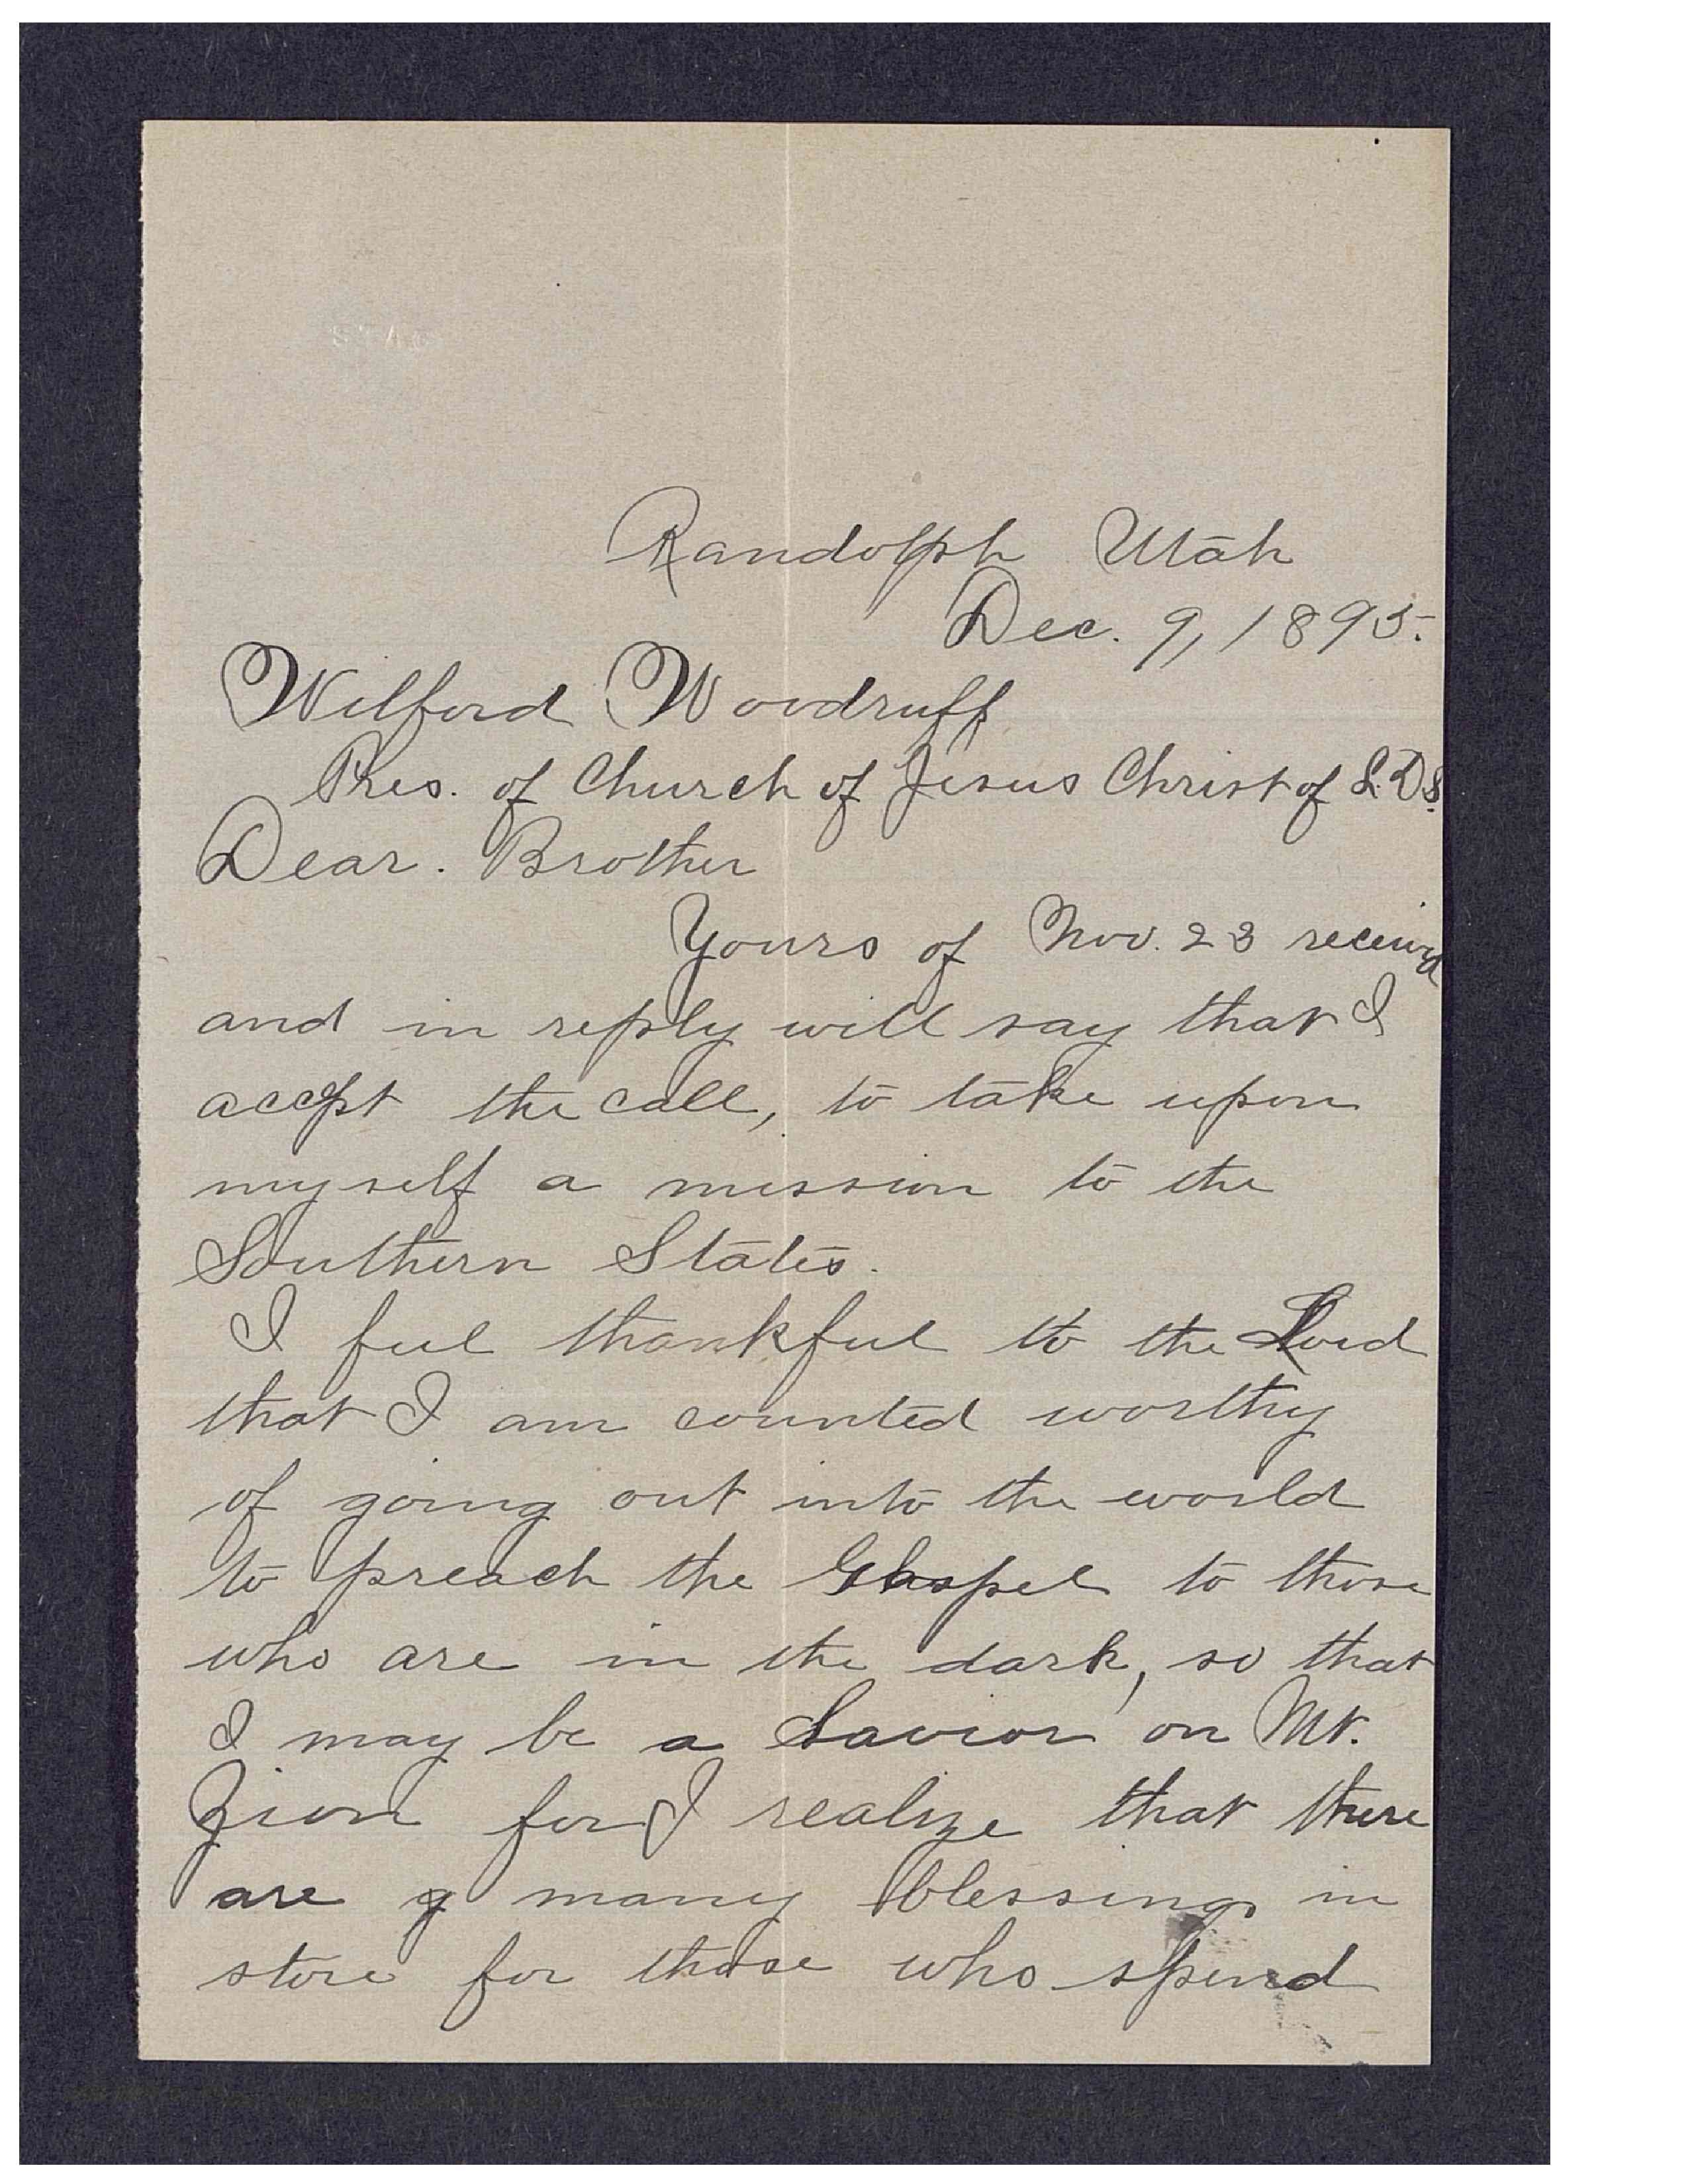 Randolph Utah
Dec. 9, 1895.
Wilford Woodruff
Pres. of Church of Jesus Christ of L.D.S.
Dear. Brother
Yours of Nov. 23 received
and in reply will say that I
accept the call, to take upon
myself a mission to the
Southern States.
I feel thankful to the Lord
that I am counted worthy
of going out into the world
to preach the Gospel to those
who are in the dark, so that
I may be a Savior on Mt.
Zion for I realize that there
are many blessings in
store for those who spend